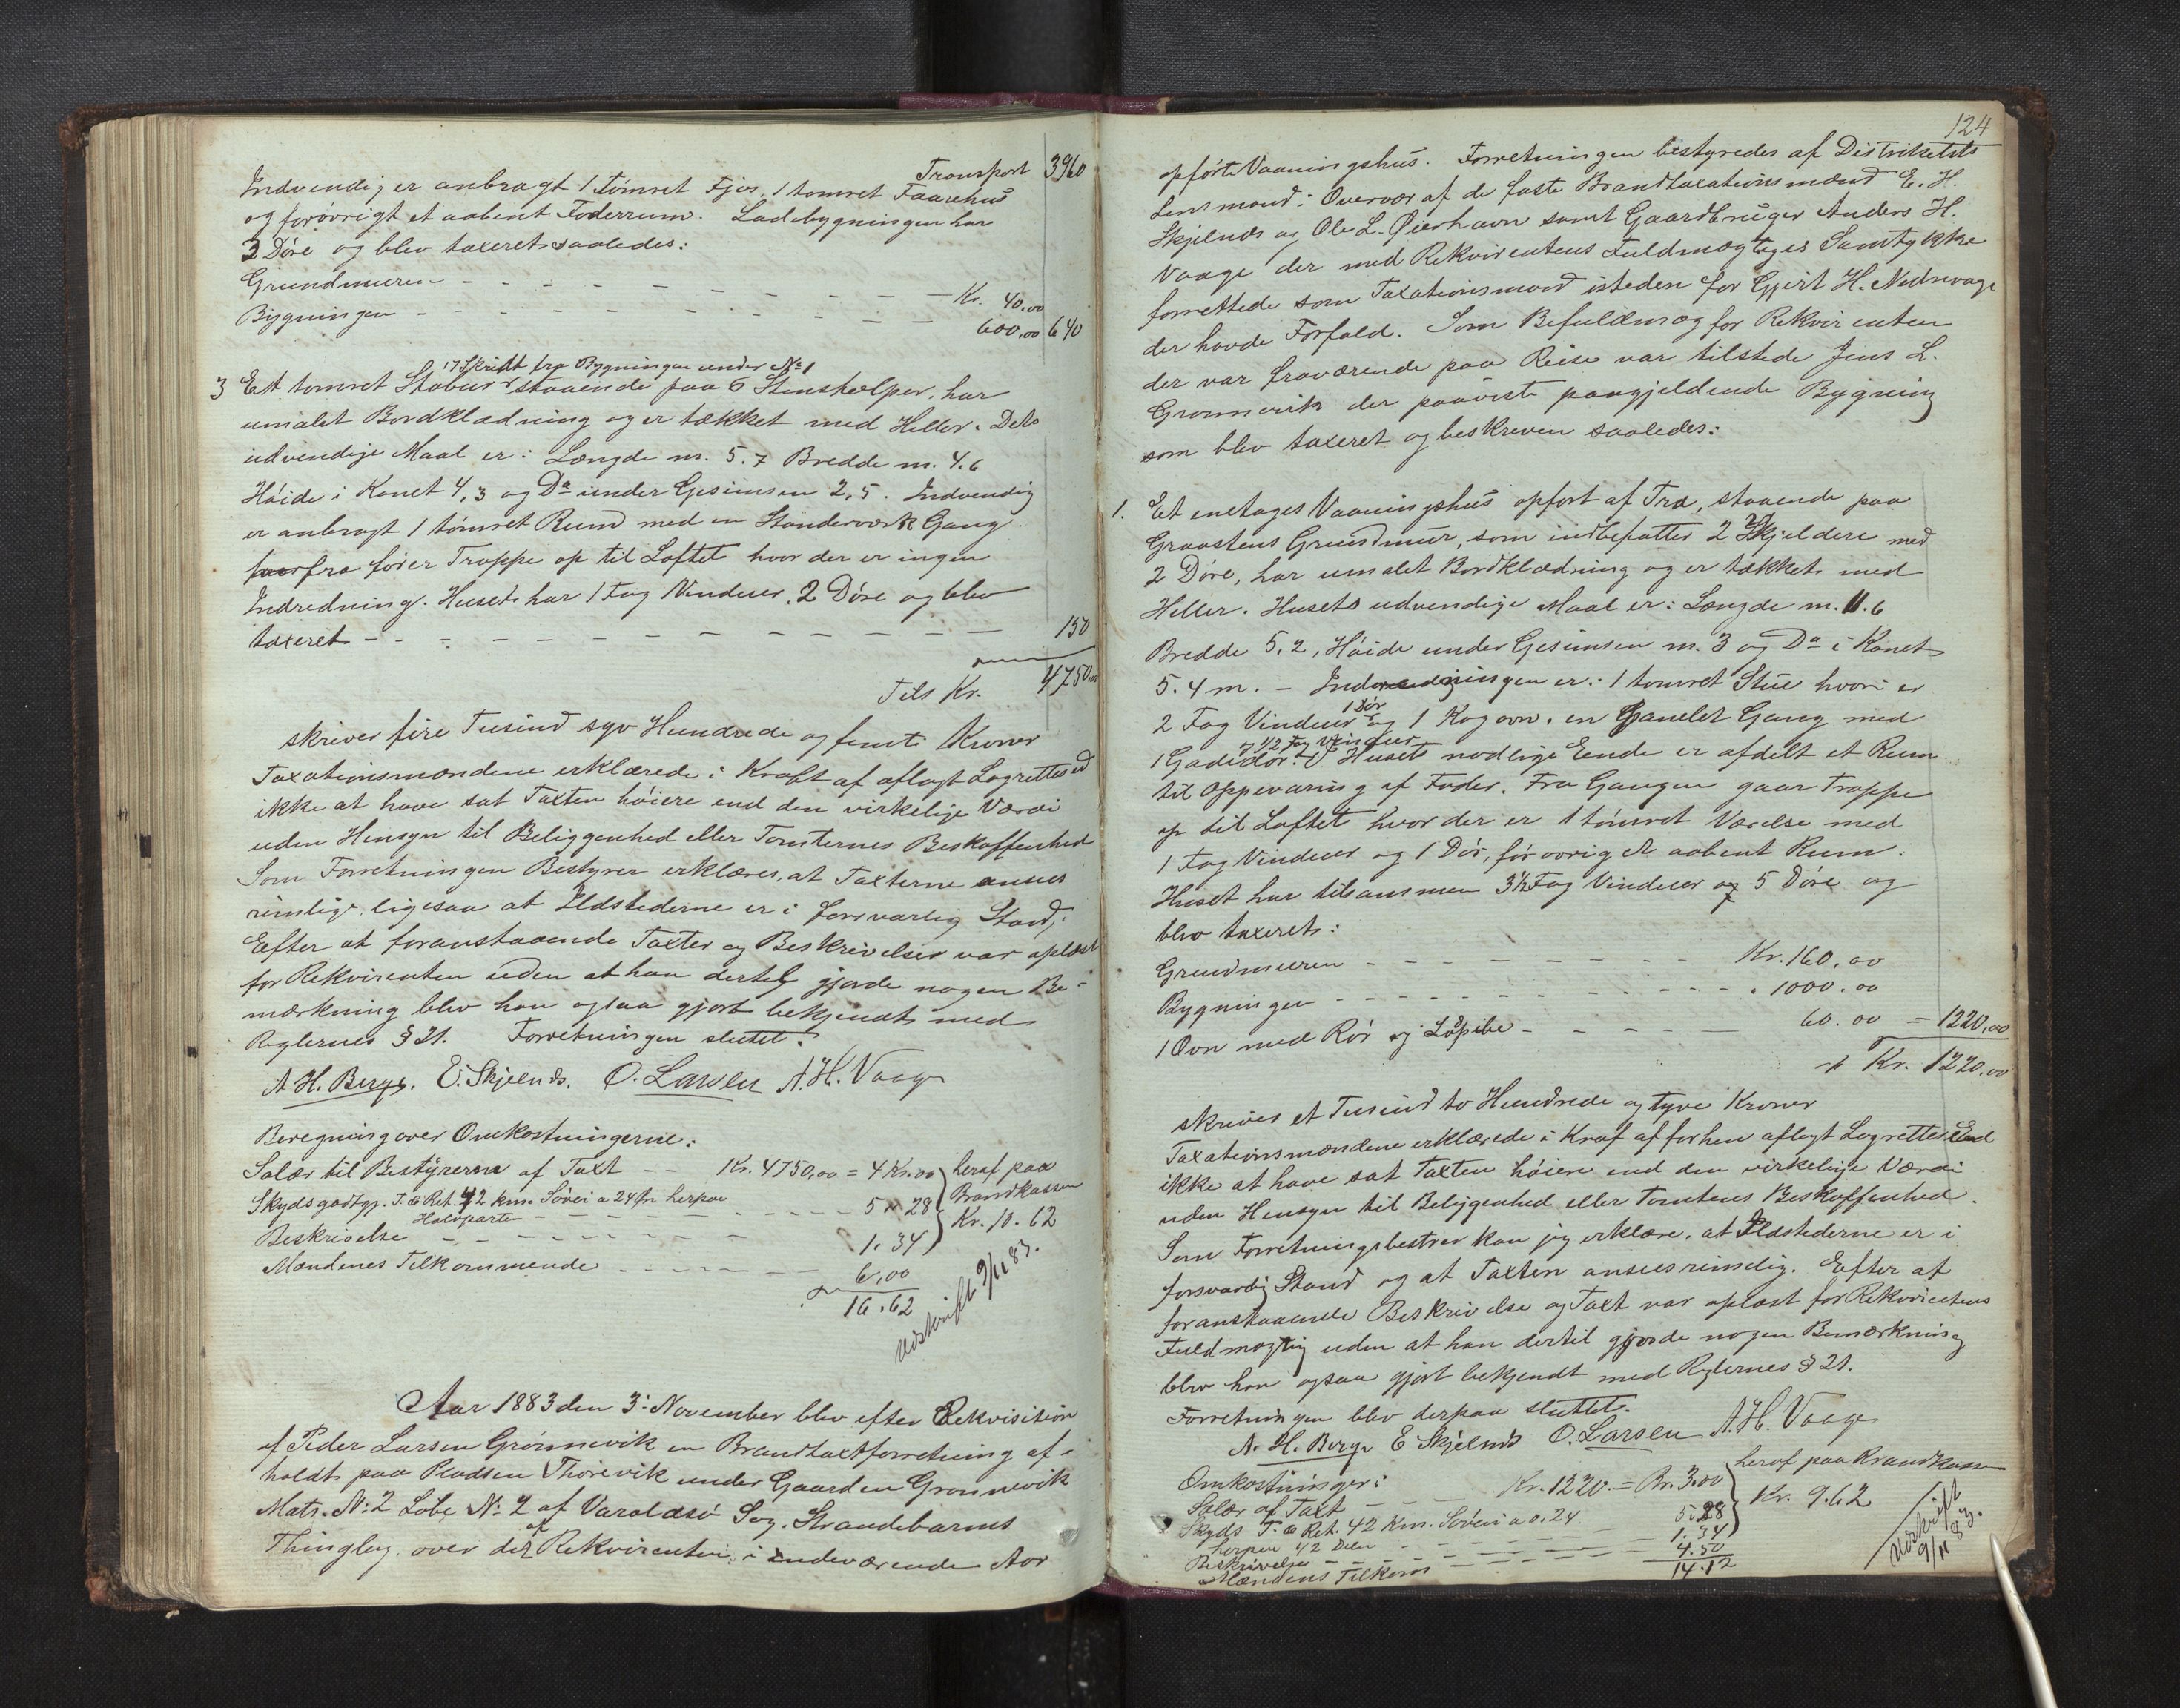 Transport 3960
Indvendig er anbragt 1 tømret Fjøs, 1 tømret Faarehus
og forøvrigt et aabent Foderrum. Ladebygningen har
3 Døre og blev taxeret saaledes:
Grundmuren - - - - - - - - - Kr. 40.00
Bygningen - - - - - - - - - 600,00 640
17 Skridt fra Bygningen under No 1
3 Et tømret Stabur staaende paa 6 Stenstolper, har
umalet Bordklædning og er tækket med Heller. Dets
udvendige Maal er: Længde m. 5.7 Bredde m. 4.6
Høide i Rønet 4,3 og Do under Gesimsen 2,5. Indvendig
er anbragt 1 tømret Rum med en Standerværk Gang
fra fører Trappe op til Loftet hvor der er ingen
Indredning. Husets har 1 Fag Vinduer, 2 Døre og blev
taxeret - - - - - - - - - - 150
Tils Kr. 4750,00
skriver fire Tusind syv Hundrede og femti Kroner
Taxationsmændene erklærede i Kraft af aflagt Lagrettesed
ikke at have sat Taxten høiere end den virkelige Værdi
uden Hensyn til Beliggenhed eller Tomternes Beskaffenhed
Som Forretningen Bestyrer erklæres, at Taxterne ansees
rimlige, ligesaa at Ildstederne er i forsvarlig Stand,
Efter at foranstaaende Taxter og Beskrivelser var oplæst
for Rekvirenten uden at han dertil gjorde nogen Be-
mærkning blev han ogsaa gjort bekjendt med
Reglernes § 21. Forretningen sluttet.
A. H. Berge. E. Skjelnæs. O. Larsen A. H. Vaage
Beregning over Omkostningerne:
Salær til Bestyreren af Taxt - - Kr. 4750,00 = 4 Kr. 00 heraf paa
Skydsgodtgj. T. & Ret. 42 km. Søvei a 24 Øre herpaa 5 " 28 Brandkassen
Halvparten
Beskrivelse - - - - - - - 1. 34 Kr. 10. 62
Mændenes Tilkommende - - - - - 6,00
16.62
Udskrift 9/11 83.
Aar 1883 den 3: November blev efter Rekvisition
af Peder Larsen Grønnevik en Brandtaxtforretning af-
holdt paa Pladsen Thorevik under Gaarden Grønnevik
Matr. No: 2 Løbe No: 2 af Varaldsø Sog. Strandebarms
Thinglag, over det af Rekvirenten i indeværende Aar
124
opførte Vaaningshus. Forretningen bestyredes af Distriktets
Lensmand i Overvær af de faste Brandtaxationsmænd E. H.
Skjelnæs og Ole L. Øierhavn samt Gaardbruger Anders H.
Vaage der med Rekvirentens Fuldmægtiges Samtykke
forrettede som Taxationsmand isteden for Gjert H. Nedrevage
der havde Forfald. Som Befuldmæg for Rekvirenten
der var fraværende paa Reise var tilstede Jens L.
Grønnevik der paaviste paagjeldende Bygning
som blev taxeret og beskreven saaledes:
1. Et enetages Vaaningshus opført af Træ, staaende paa
Graastens Grundmur, som indbefatter 2 Kjeldere med
2 Døre, har umalet Bordklædning og er tækkets med
Heller. Husets udvendige Maal er: Længde m. 11.6
Bredde 5.2, Høide under Gesimsen m. 3 og Do i Rønet
5.4 m. - Indredningen er: 1 tømret Stue hvori er
1 Dør
2 Fag Vinduer og 1 Kogovn. en Panelet Gang med
og 1/2 Fag Vinduer
1 Gadedør. I Husets nordlige Ende er afdelt et Rum
til Oppevaring af Foder. Fra Gangen gaar Trappe
op til Loftet hvor der er 1 tømret Værelse med
1 Fag Vinduer og 1 Dør, forøvrig et aabent Rum.
Huset har tilsammen 3 1/2 Fag Vinduer og 5 Døre og
blev taxeret:
Grundmuren - - - - - - - - Kr. 160.00
Bygningen - - - - - - - - - - " 1000.00
1 Ovn med Rør og Løpibe - - - - - 60.00 = 1220,00
Kr. 1220.00
skriver et Tusind to Hundrede og tyve Kroner
Taxationsmændene erklærede i Kraf af forhen aflagt Lagrettes Eed
ikke at have sat Taxten høiere end den virkelige Værdi
uden Hensyn til Beliggenhed eller Tomtens Beskaffenhed.
Som Forretningsbestrer kan jeg erklære, at Ildstederne er i
forsvarlig Stand og at Taxten ansees rimelig. Efter af
foranstaaende Beskrivelse og Taxt var oplæst for Rekvirentens
Fuldmægtig uden at han dertil gjorde nogen Bemærkning
blev han ogsaa gjort bekjendt med Reglernes § 21.
Forretningen blev derpaa sluttet.
A. H. Berge E Skjelnæs O. Larsen A. H. Vaage
Omkostninger: heraf paa Brandkassen
Salær af Taxt - - - Kr. 1220. = Kr. 3.00 Kr. 9.62
Skyds T. & Ret. 42 Km. Søvei a 0.24 5.28
herpaa 1/2 Delen
Beskrivelse - - - - - - 1.34
Mændens Tilkom - - - - - 4.50
14.12
Udskrift
9/11 83.